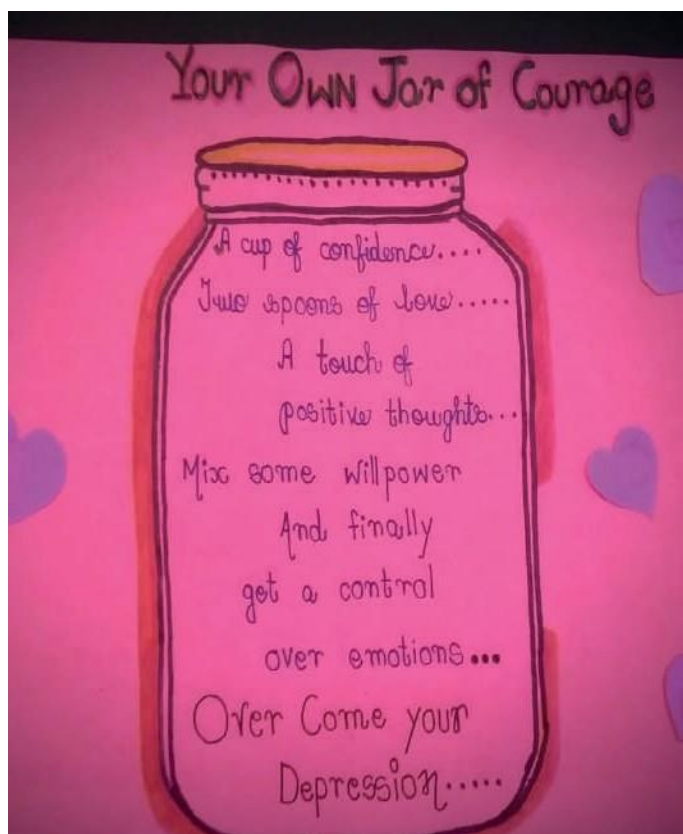 Your Own Jar of Courage
A cup of confidence....
Two spoons of love.....
A touch of
positive thoughts...
Mix some willpower
And finally
get a control
over emotions...
Over Come your
Depression.....